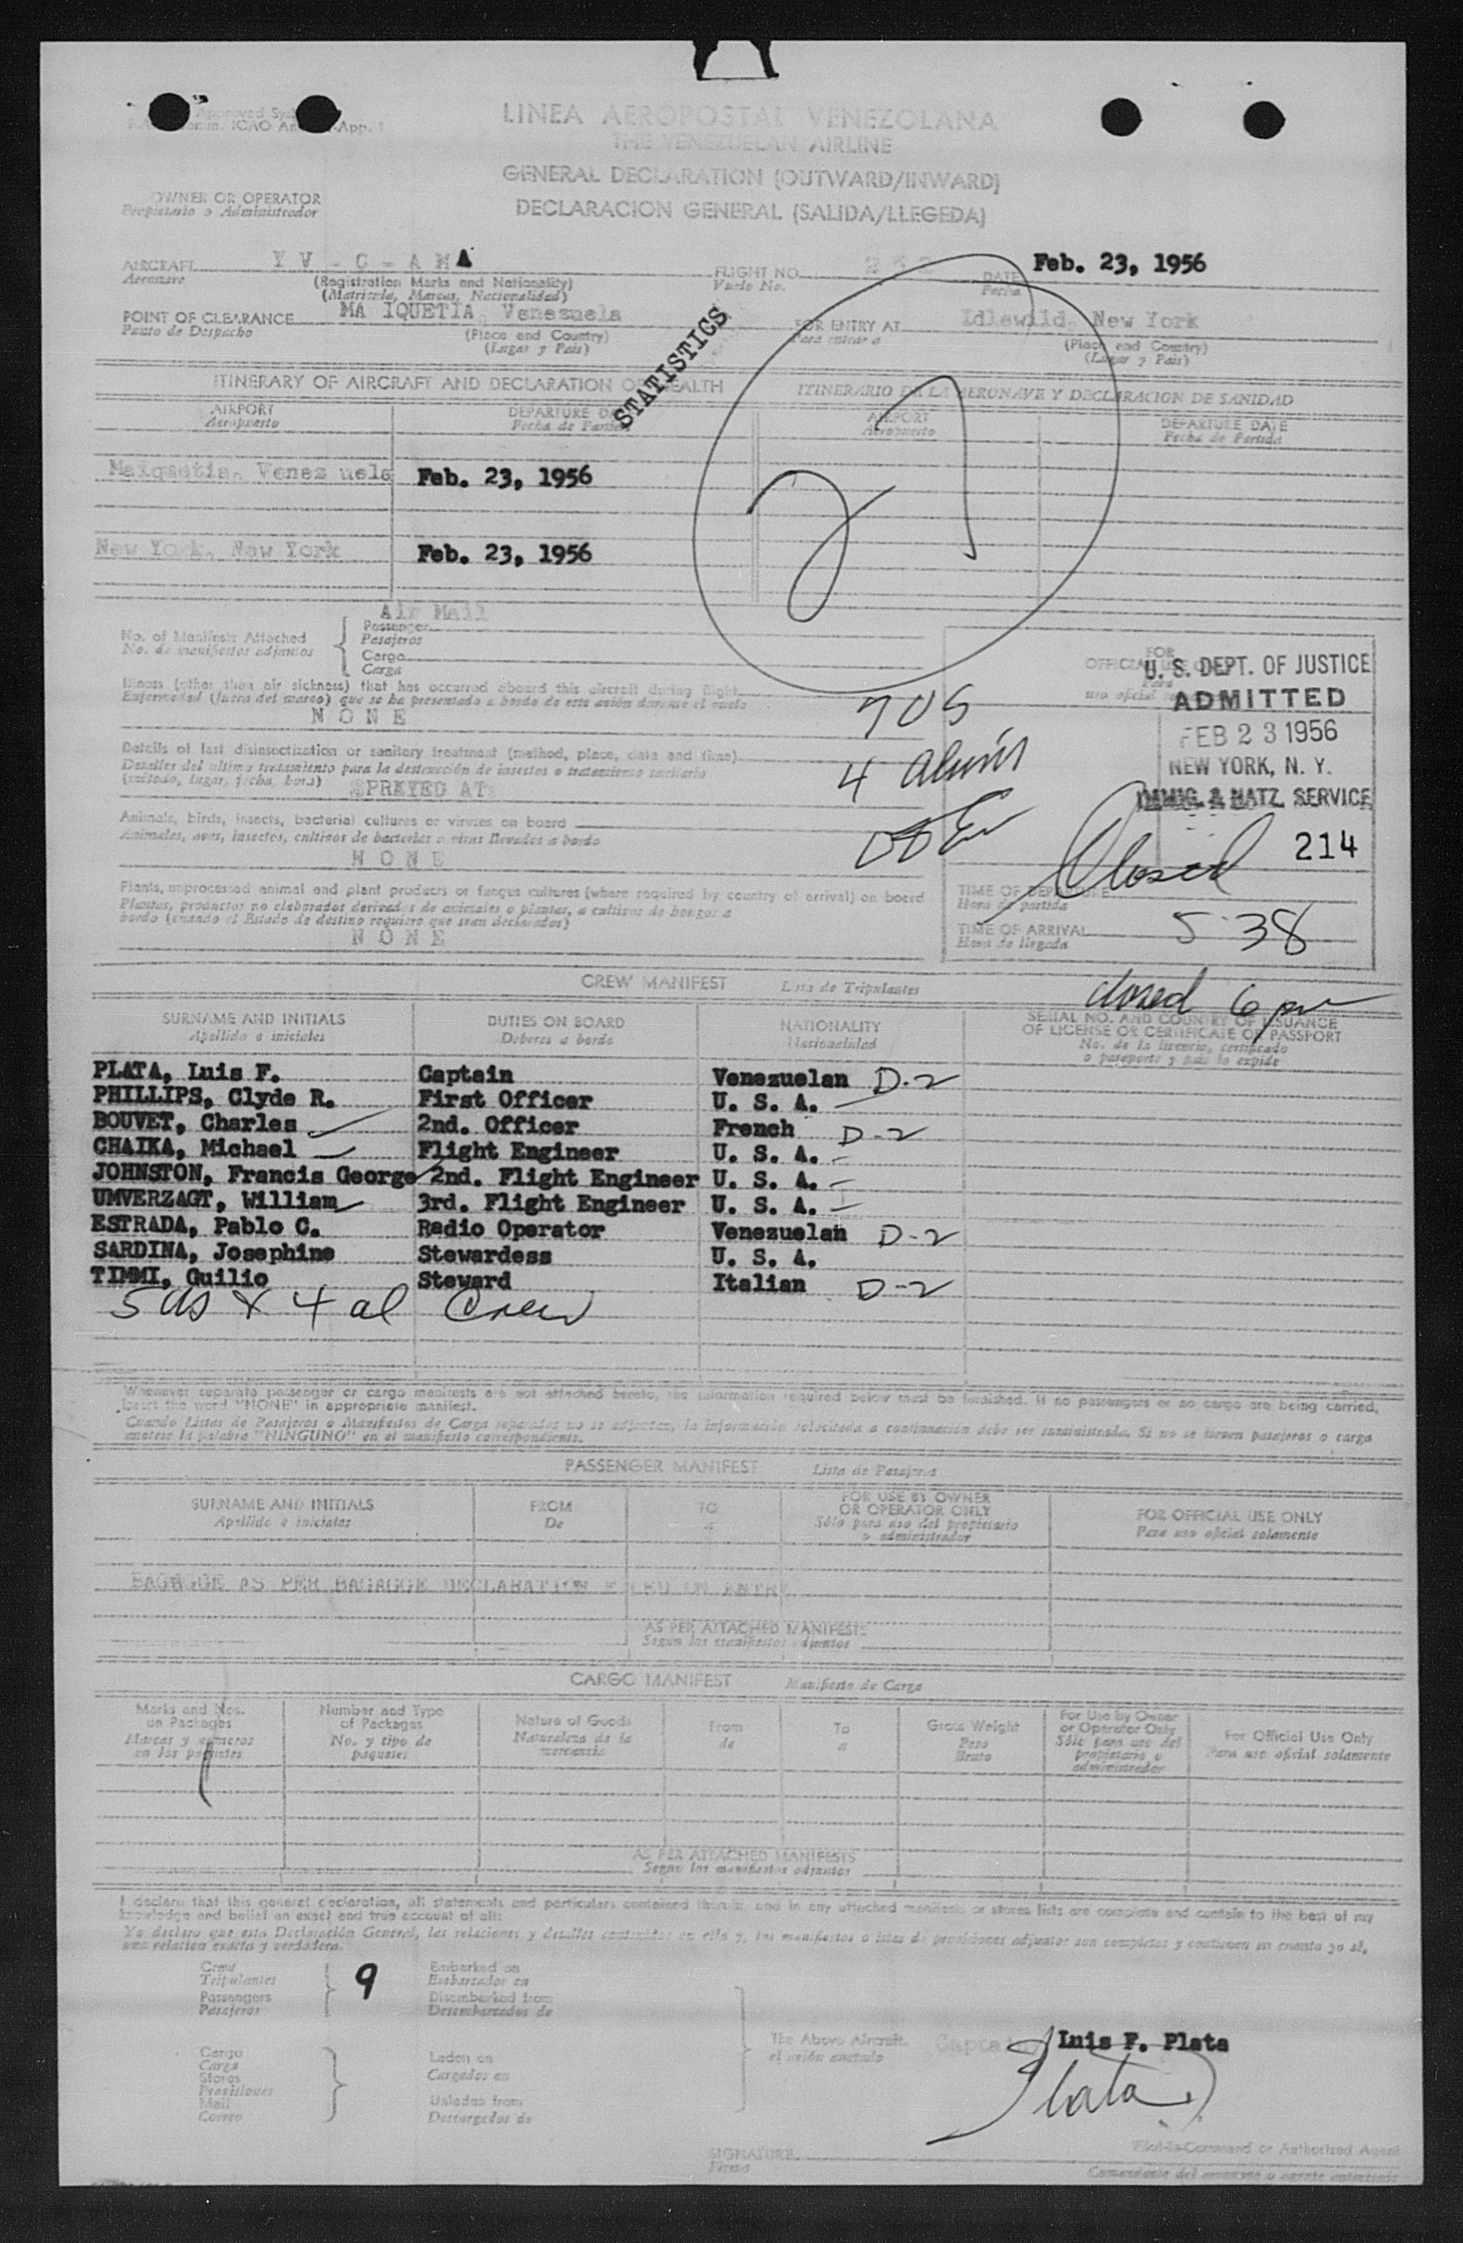 LINEA AEROPOSTAL VENEZOLANA
THE VENEZUELAN AIRLINE
GENERAL DECLARATION (OUTWARD/INWARD)
DECLARACION GENERAL (SALIDA/LLEGEDA)
OWNER OR OPERATOR
Propietario o Administrador
AIRCRAFT Y V - C - A M A FLIGHT NO. 252 DATE Feb. 23, 1956
Aeronave (Registration Marks and Nationality) Vuelo No. Fecha
(Matricula, Marcas, Nacionalidad)
POINT OF CLEARANCE MA IQUETIA, Venezuela FOR ENTRY AT Idlewild, New York
Punto de Despacho (Place and Country) Para entrar a (Place and Country)
(Lugar y Pais) (Lugar y Pais)
STATISTICS
ITINERARY OF AIRCRAFT AND DECLARATION OF HEALTH ITINERARIO DE LA AERONAVE Y DECLARACION DE SANIDAD
AIRPORT DEPARTURE DATE AIRPORT DEPARTURE DATE
Aeropuerto Fecha de Partida Aeropuerto Fecha de Partida
Maiquetia, Venez uela Feb. 23, 1956
New York, New York Feb. 23, 1956
21
Air Mail
No. of Manifests Attached Passenger
No. de manifiestos adjuntos Pasajeros
Cargo
Carga
Illness (other than air sickness) that has occurred aboard this aircraft during flight
Enfermedad (fuera del mareo) que se ha presentado a bordo de este avión durante el vuelo
N O N E
Details of last disinsectization or sanitary treatment (method, place, date and time)
Detalles del ultimo tratamiento para la destrucción de insectos o tratamiento sanitario
(método, lugar, fecha, hora) SPRAYED AT:
Animals, birds, insects, bacterial cultures or viruses on board
Animales, aves, insectos, cultivos de bacterias o virus llevados a bordo
N O N E
Plants, unprocessed animal and plant products or fungus cultures (where required by country of arrival) on board
Plantas, productos no elaborados derivados de animales o plantas, o cultivos de hongos a
bordo (cuando el Estado de destino requiere que sean declarados)
N O N E
4 aliens
FOR
OFFICIAL USE
Para
uso oficial
U. S. DEPT. OF JUSTICE
ADMITTED
FEB 23 1956
NEW YORK, N. Y.
IMMIG. & NATZ. SERVICE
214
Closed
TIME OF DEPARTURE
Hora de partida
TIME OF ARRIVAL 5 38
Hora de llegada
closed 6 pm
CREW MANIFEST Lista de Tripulantes
SURNAME AND INITIALS DUTIES ON BOARD NATIONALITY SERIAL NO. AND COUNTRY OF ISSUANCE
Apellido e iniciales Deberes a bordo Nacionalidad OF LICENSE OR CERTIFICATE OR PASSPORT
No. de la licencia, certificado
o pasaporte y pais lo expide
PLATA, Luis F. Captain Venezuelan D-2
PHILLIPS, Clyde R. First Officer U. S. A.
BOUVET, Charles 2nd. Officer French D-2
CHAIKA, Michael Flight Engineer U. S. A.
JOHNSTON, Francis George 2nd. Flight Engineer U. S. A.
UMVERZAGT, William 3rd. Flight Engineer U. S. A.
ESTRADA, Pablo C. Radio Operator Venezuelan D-2
SARDINA, Josephine Stewardess U. S. A.
TIMMI, Guilio Steward Italian D-2
5 us & 4 al Crew
Whenever separate passenger or cargo manifests are not attached hereto, the information required below must be furnished. If no passengers or no cargo are being carried,
insert the word "NONE" in appropriate manifest.
Cuando Listas de Pasajeros o Manifiestos de Carga separados no se adjunten, la información solicitada a continuación debe ser suministrada. Si no se tienen pasajeros o carga
anotese la palabra "NINGUNO" en el manifiesto correspondiente.
PASSENGER MANIFEST Lista de Pasajeros
SURNAME AND INITIALS FROM TO FOR USE BY OWNER FOR OFFICIAL USE ONLY
Apellido e iniciales De a OR OPERATOR ONLY Para uso oficial solamente
Sólo para uso del propietario
o administrador
BAGAGGE AS PER BAGAGGE DECLARATION
AS PER ATTACHED MANIFESTS
Segun los manifiestos adjuntos
CARGO MANIFEST Manifiesto de Carga
Marks and Nos. Number and Type Nature of Goods From To Gross Weight For Use by Owner For Official Use Only
on Packages of Packages Naturaleza de la de a Peso or Operator Only Para uso oficial solamente
Marcas y números No. y tipo de mercancia Bruto Sólo para uso del
en los paquetes paquetes propietario o
administrador
AS PER ATTACHED MANIFESTS
Segun los manifiestos adjuntos
I declare that this general declaration, all statements and particulars contained therein, and in any attached manifests or stores lists are complete and contain to the best of my
knowledge and belief an exact and true account of all:
Yo declaro que esta Declaración General, las relaciones y detalles contenidos en ella y, los manifiestos o listas de provisiones adjuntos son completos y contienen en cuanto yo sé,
una relation exacta y verdadera.
Crew 9 Embarked on
Tripulantes Embarcados en
Passengers Disembarked from
Pasajeros Desembarcados de
Cargo The Above Aircraft. Captain Luis F. Plata
Carga Laden on el avión anotado
Stores Cargados en
Provisiones
Mail Unladen from
Correo Descargados de
Plata
SIGNATURE Pilot-in-Command or Authorized Agent
Firma Comandante del aeronave o agente autorizado